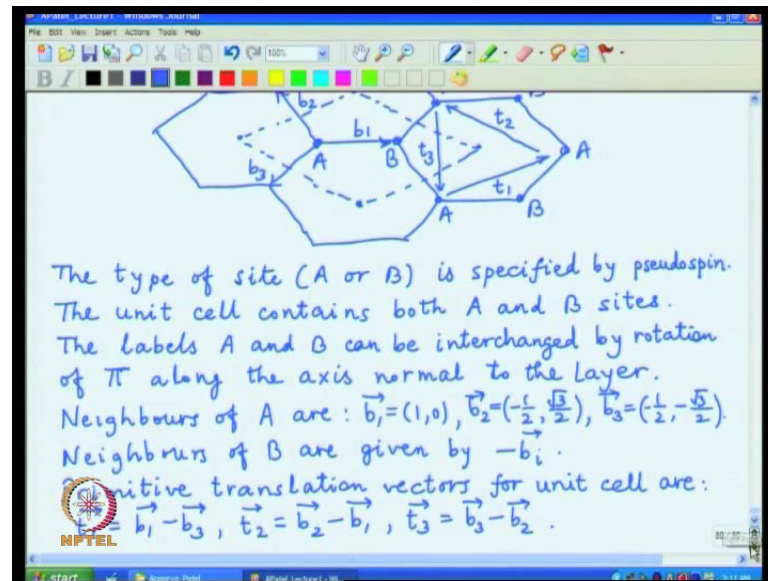 APatel_Lecture1 - Windows Journal
File Edit View Insert Actions Tools Help
100%
B I
b2
b1
b3
A
B
t3
t2
t1
A
A
B
B
The type of site (A or B) is specified by pseudospin.
The unit cell contains both A and B sites.
The labels A and B can be interchanged by rotation
of π along the axis normal to the layer.
Neighbours of A are : b⃗₁=(1,0), b⃗₂=(-1/2, √3/2), b⃗₃=(-1/2, -√3/2).
Neighbrurs of B are given by -b⃗ᵢ.
translation vectors for unit cell are:
= b⃗₁ - b⃗₃, t⃗₂ = b⃗₂ - b⃗₁, t⃗₃ = b⃗₃ - b⃗₂ .
NPTEL
start
Apoorva Patel
APatel_Lecture1 - Wi...